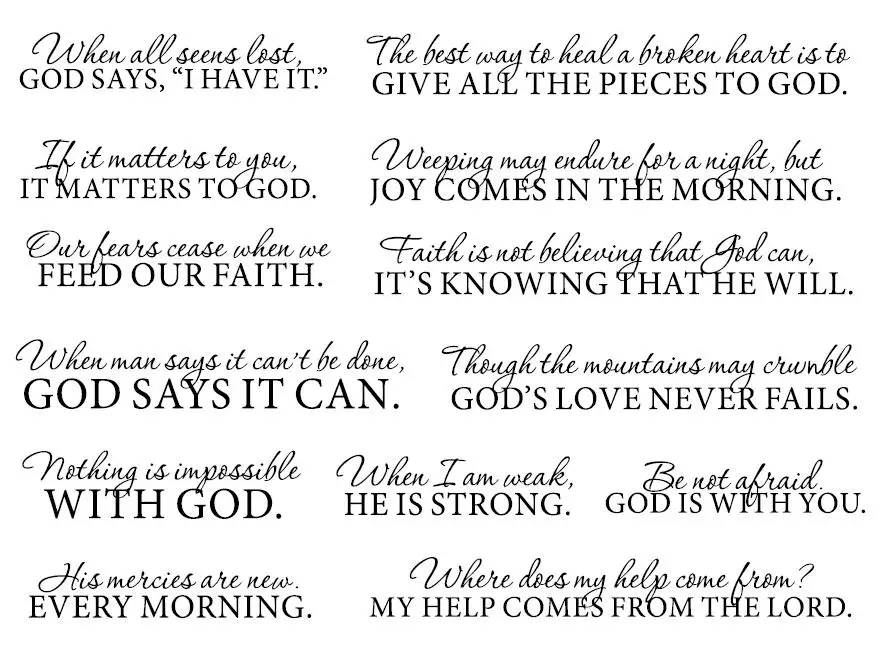 When all seens lost,
GOD SAYS, “I HAVE IT.”
The best way to heal a broken heart is to
GIVE ALL THE PIECES TO GOD.
If it matters to you,
IT MATTERS TO GOD.
Weeping may endure for a night, but
JOY COMES IN THE MORNING.
Our fears cease when we
FEED OUR FAITH.
Faith is not believing that God can,
IT’S KNOWING THAT HE WILL.
When man says it can’t be done,
GOD SAYS IT CAN.
Though the mountains may crumble
GOD’S LOVE NEVER FAILS.
Nothing is impossible
WITH GOD.
When I am weak,
HE IS STRONG.
Be not afraid.
GOD IS WITH YOU.
His mercies are new.
EVERY MORNING.
Where does my help come from?
MY HELP COMES FROM THE LORD.